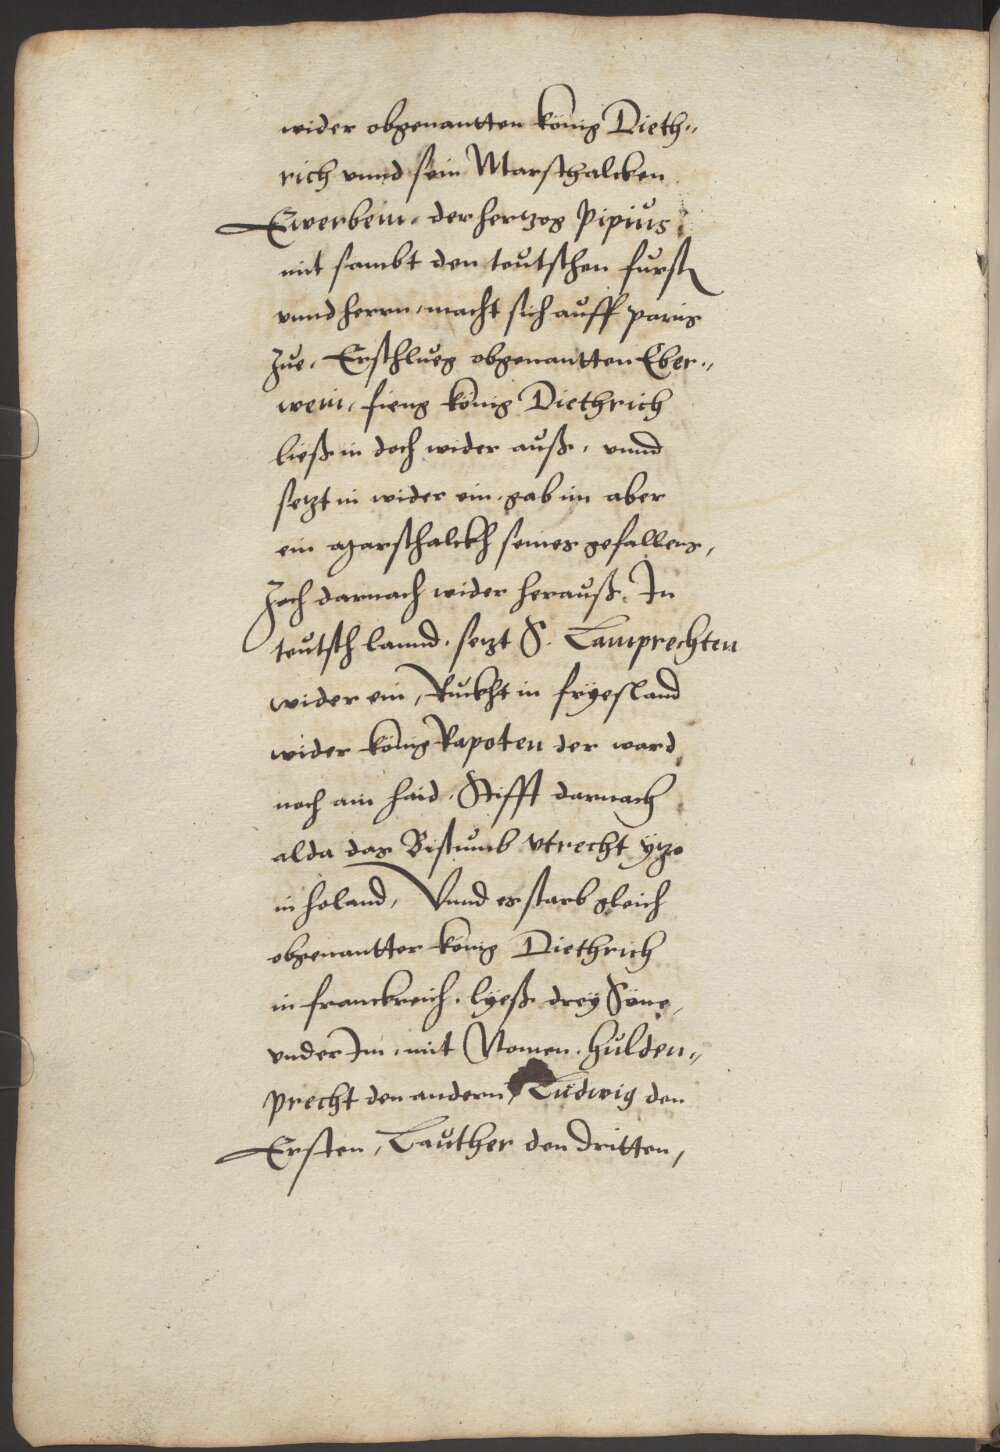 wider obgenantten König Dieth„
rich vnnd sein Marschalcken
Ewerbein. der hertzog Pipius
mit sambt den teutschen furst
vnnd herrn, macht sich auff paris
zue. Erschlueg obgenantten Eber„
wein, fieng König Diethrich
ließ in doch wider auß, vnnd
setzt in wider ein. gab im aber
ein marschalckh seines gefallens,
Zoch darnach wider herauß. In
teutsch lannd. setzt S. Lamprechten
wider ein, Ruckht in fryesland
wider König Rapoten der ward
noch ain haid. Stifft darnach
alda das Bistumb vtrecht ytzo
in holand, Vnnd es starb gleich
obgenantter König Diethrich
in franckreich. lyeß drey Söne,
vnder Im, mit Namen. hulden„
precht den andern, Ludwig den
Ersten, Lauther den dritten,